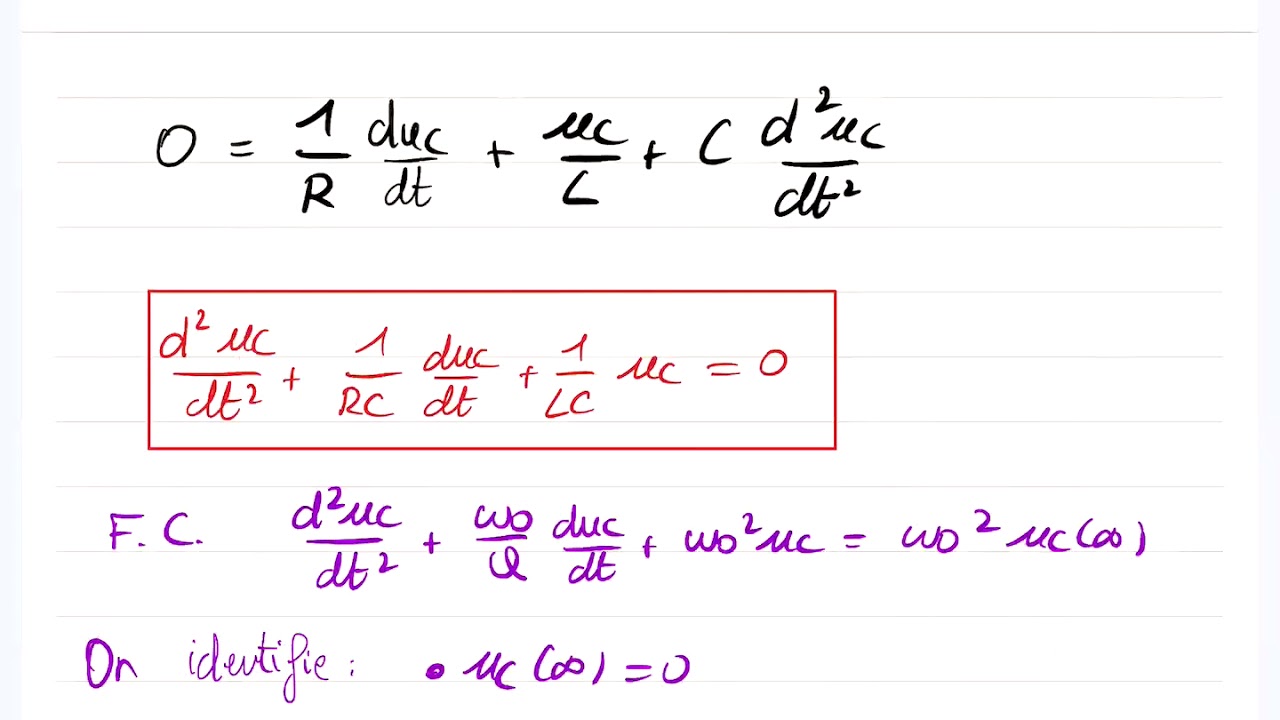 0 = 1/R duc/dt + uc/L + C d²uc/dt²
d²uc/dt² + 1/RC duc/dt + 1/LC uc = 0
F.C. d²uc/dt² + ω0/Q duc/dt + ω0² uc = ω0² uc(∞)
On identifie : • uc(∞) = 0